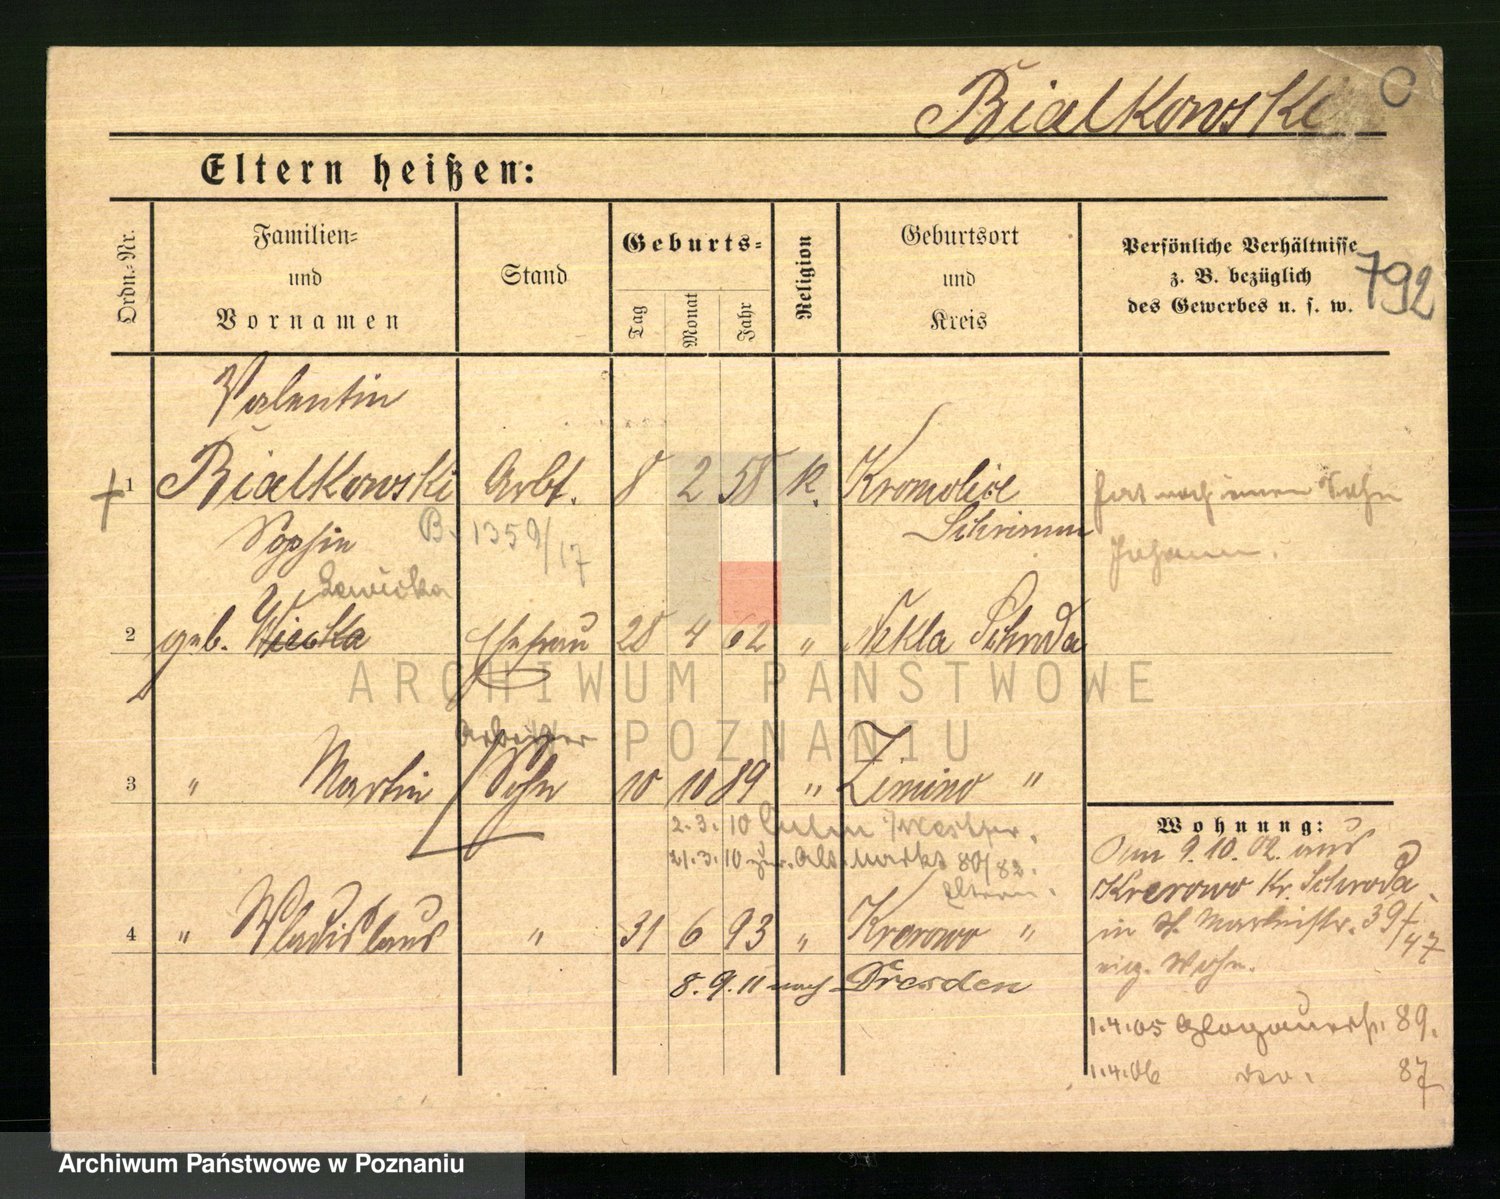 Bialkowski
C
Eltern heißen:
Ordn.-Nr.
Familien-
und
Vornamen
Stand
Geburts-
Tag
Monat
Jahr
Religion
Geburtsort
und
Kreis
Persönliche Verhältnisse
z. B. bezüglich
des Gewerbes u. s. w.
792
Valentin
1 Bialkowski Arbt. 8 2 58 k. Kromolice
Schrimm
hat noch einen Sohn
Johann.
Sophie
B. 1359/17
Lewicka
2 geb. Wicka Ehefrau 28 4 62 " Nekla Schroda
ARCHIWUM PAŃSTWOWE
W POZNANIU
Arbeiter
3 " Martin Sohn 10 10 89 " Zimino "
2.3.10 Culm /Westpr.
21.3.10 zur. Alt. Markt 80/82.
Eltern.
4 " Wladislaus " 31 6 93 " Krerowo "
8.9.11 nach Dresden
Wohnung:
Am 9.10.02. aus
Krerowo Kr. Schroda
in St. Martinstr. 39/47
eig. Wohn.
1.4.05 Glogauerstr. 89.
1.4.06 do. 87
Archiwum Państwowe w Poznaniu